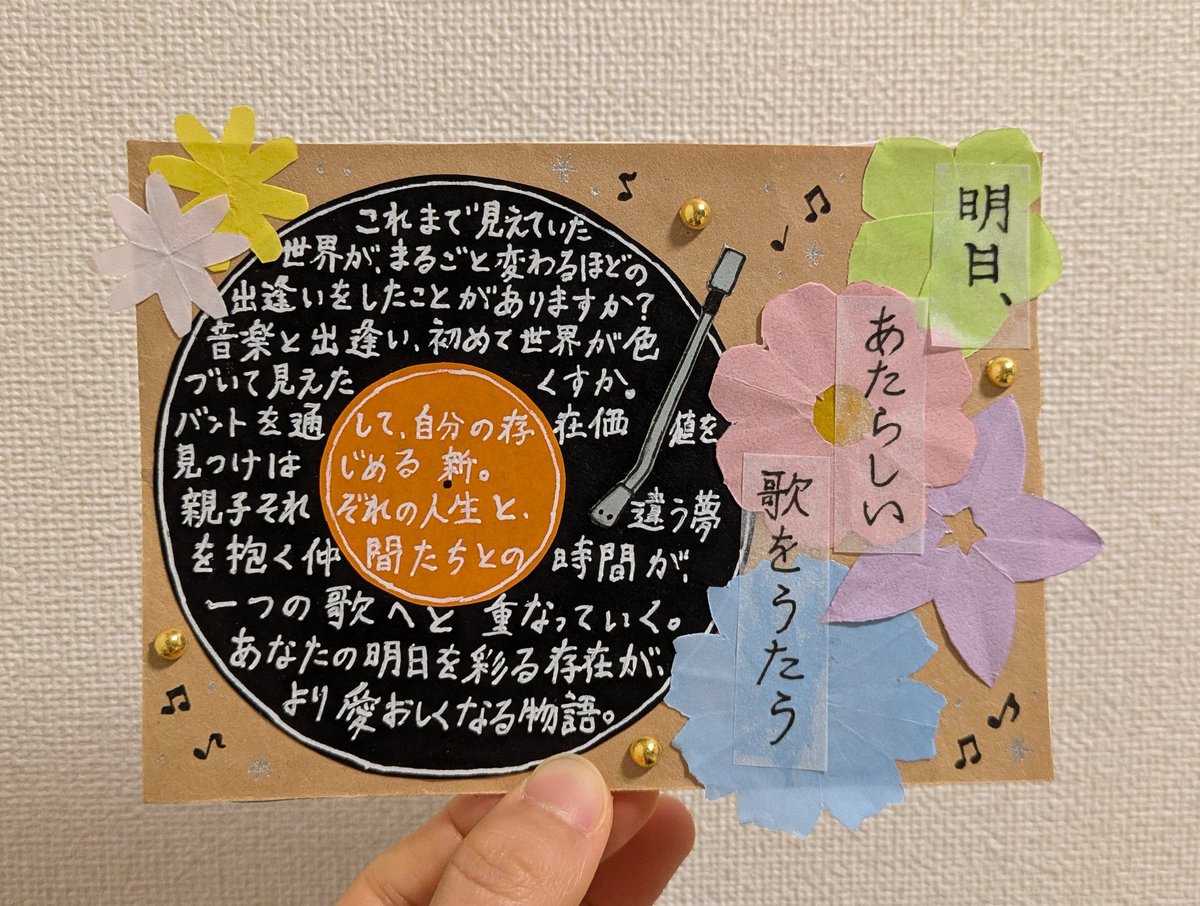 これまで見えていた
世界が、まるごと変わるほどの
出逢いをしたことがありますか？
音楽と出逢い、初めて世界が色
づいて見えた くすか。
バンドを通して、自分の存在価値を
見つけはじめる新。
親子それぞれの人生と、違う夢
を抱く仲間たちとの時間が、
一つの歌へと重なっていく。
あなたの明日を彩る存在が、
より愛おしくなる物語。
明日、
あたらしい
歌をうたう